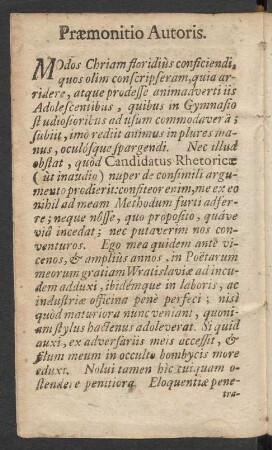 Præmonitio Autoris.
Modos Chriam floridiùs conficiendi,
quos olim conscripseram, quia ar-
ridere, atque prodesse animadverti iis
Adolescentibus, quibus in Gymnasio
studiosioribus ad usum commodaverã;
subiit, imò rediit animus in plures ma-
nus, oculósque spargendi. Nec illud
obstat, quòd Candidatus Rhetoricæ
(ùt inaudio) nuper de consimili argu-
mento prodierit: confiteor enim, me ex eo
nihil ad meam Methodum furti adfer-
re; neque nôsse, quo proposito, quâve
viâ incedat; nec putaverim nos con-
venturos. Ego mea quidem ante vi-
cenos, & ampliùs annos, in Poëtarum
meorum gratiam Wratislaviæ ad incu-
dem adduxi, ibidémque in laboris, ac
industriæ officina penè perfeci; nisi
quòd maturiora nunc veniant, quoni-
am stylus hactenus adoleverat. Si quid
auxi, ex adversariis meis accessit, &
filum meum in occulto bombycis more
eduxi. Nolui tamen hîc cuiquam o-
stendere penitiora Eloquentiæ pene-
tra-